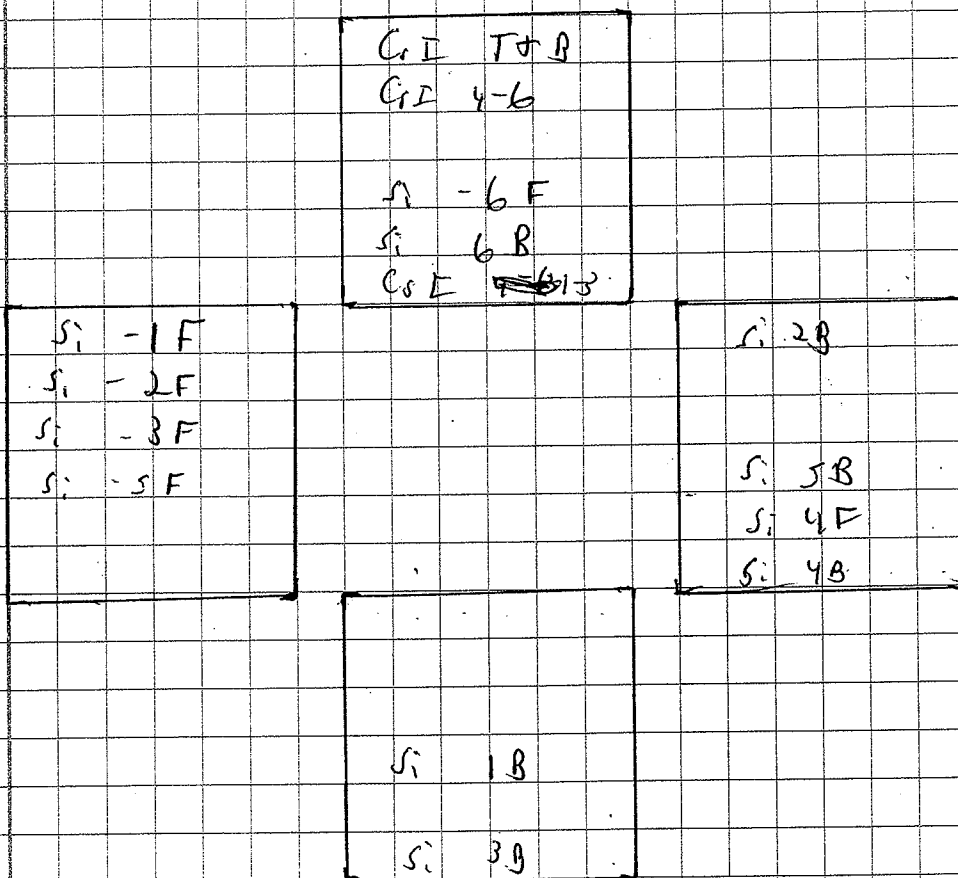 CsI T+B
CsI 4-6
Si -6 F
Si 6 B
CsI 1-3
Si -1 F
Si - 2F
Si - 3F
Si -5 F
Si 2B
Si 5B
Si 4F
Si 4B
Si 1B
Si 3B